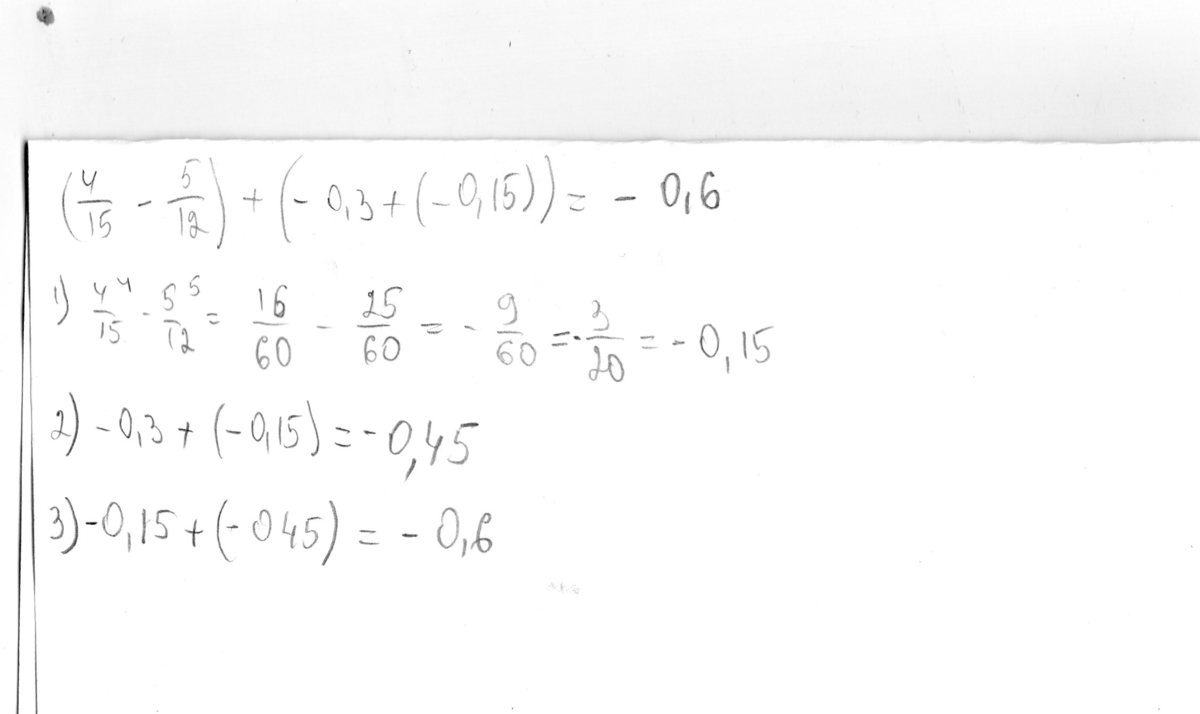 (4/15 - 5/12) + (- 0,3 + (-0,15)) = - 0,6
1) 4⁴/15 - 5⁵/12 = 16/60 - 25/60 = - 9/60 = - 3/20 = - 0,15
2) - 0,3 + (-0,15) = - 0,45
3) -0,15 + (- 045) = - 0,6